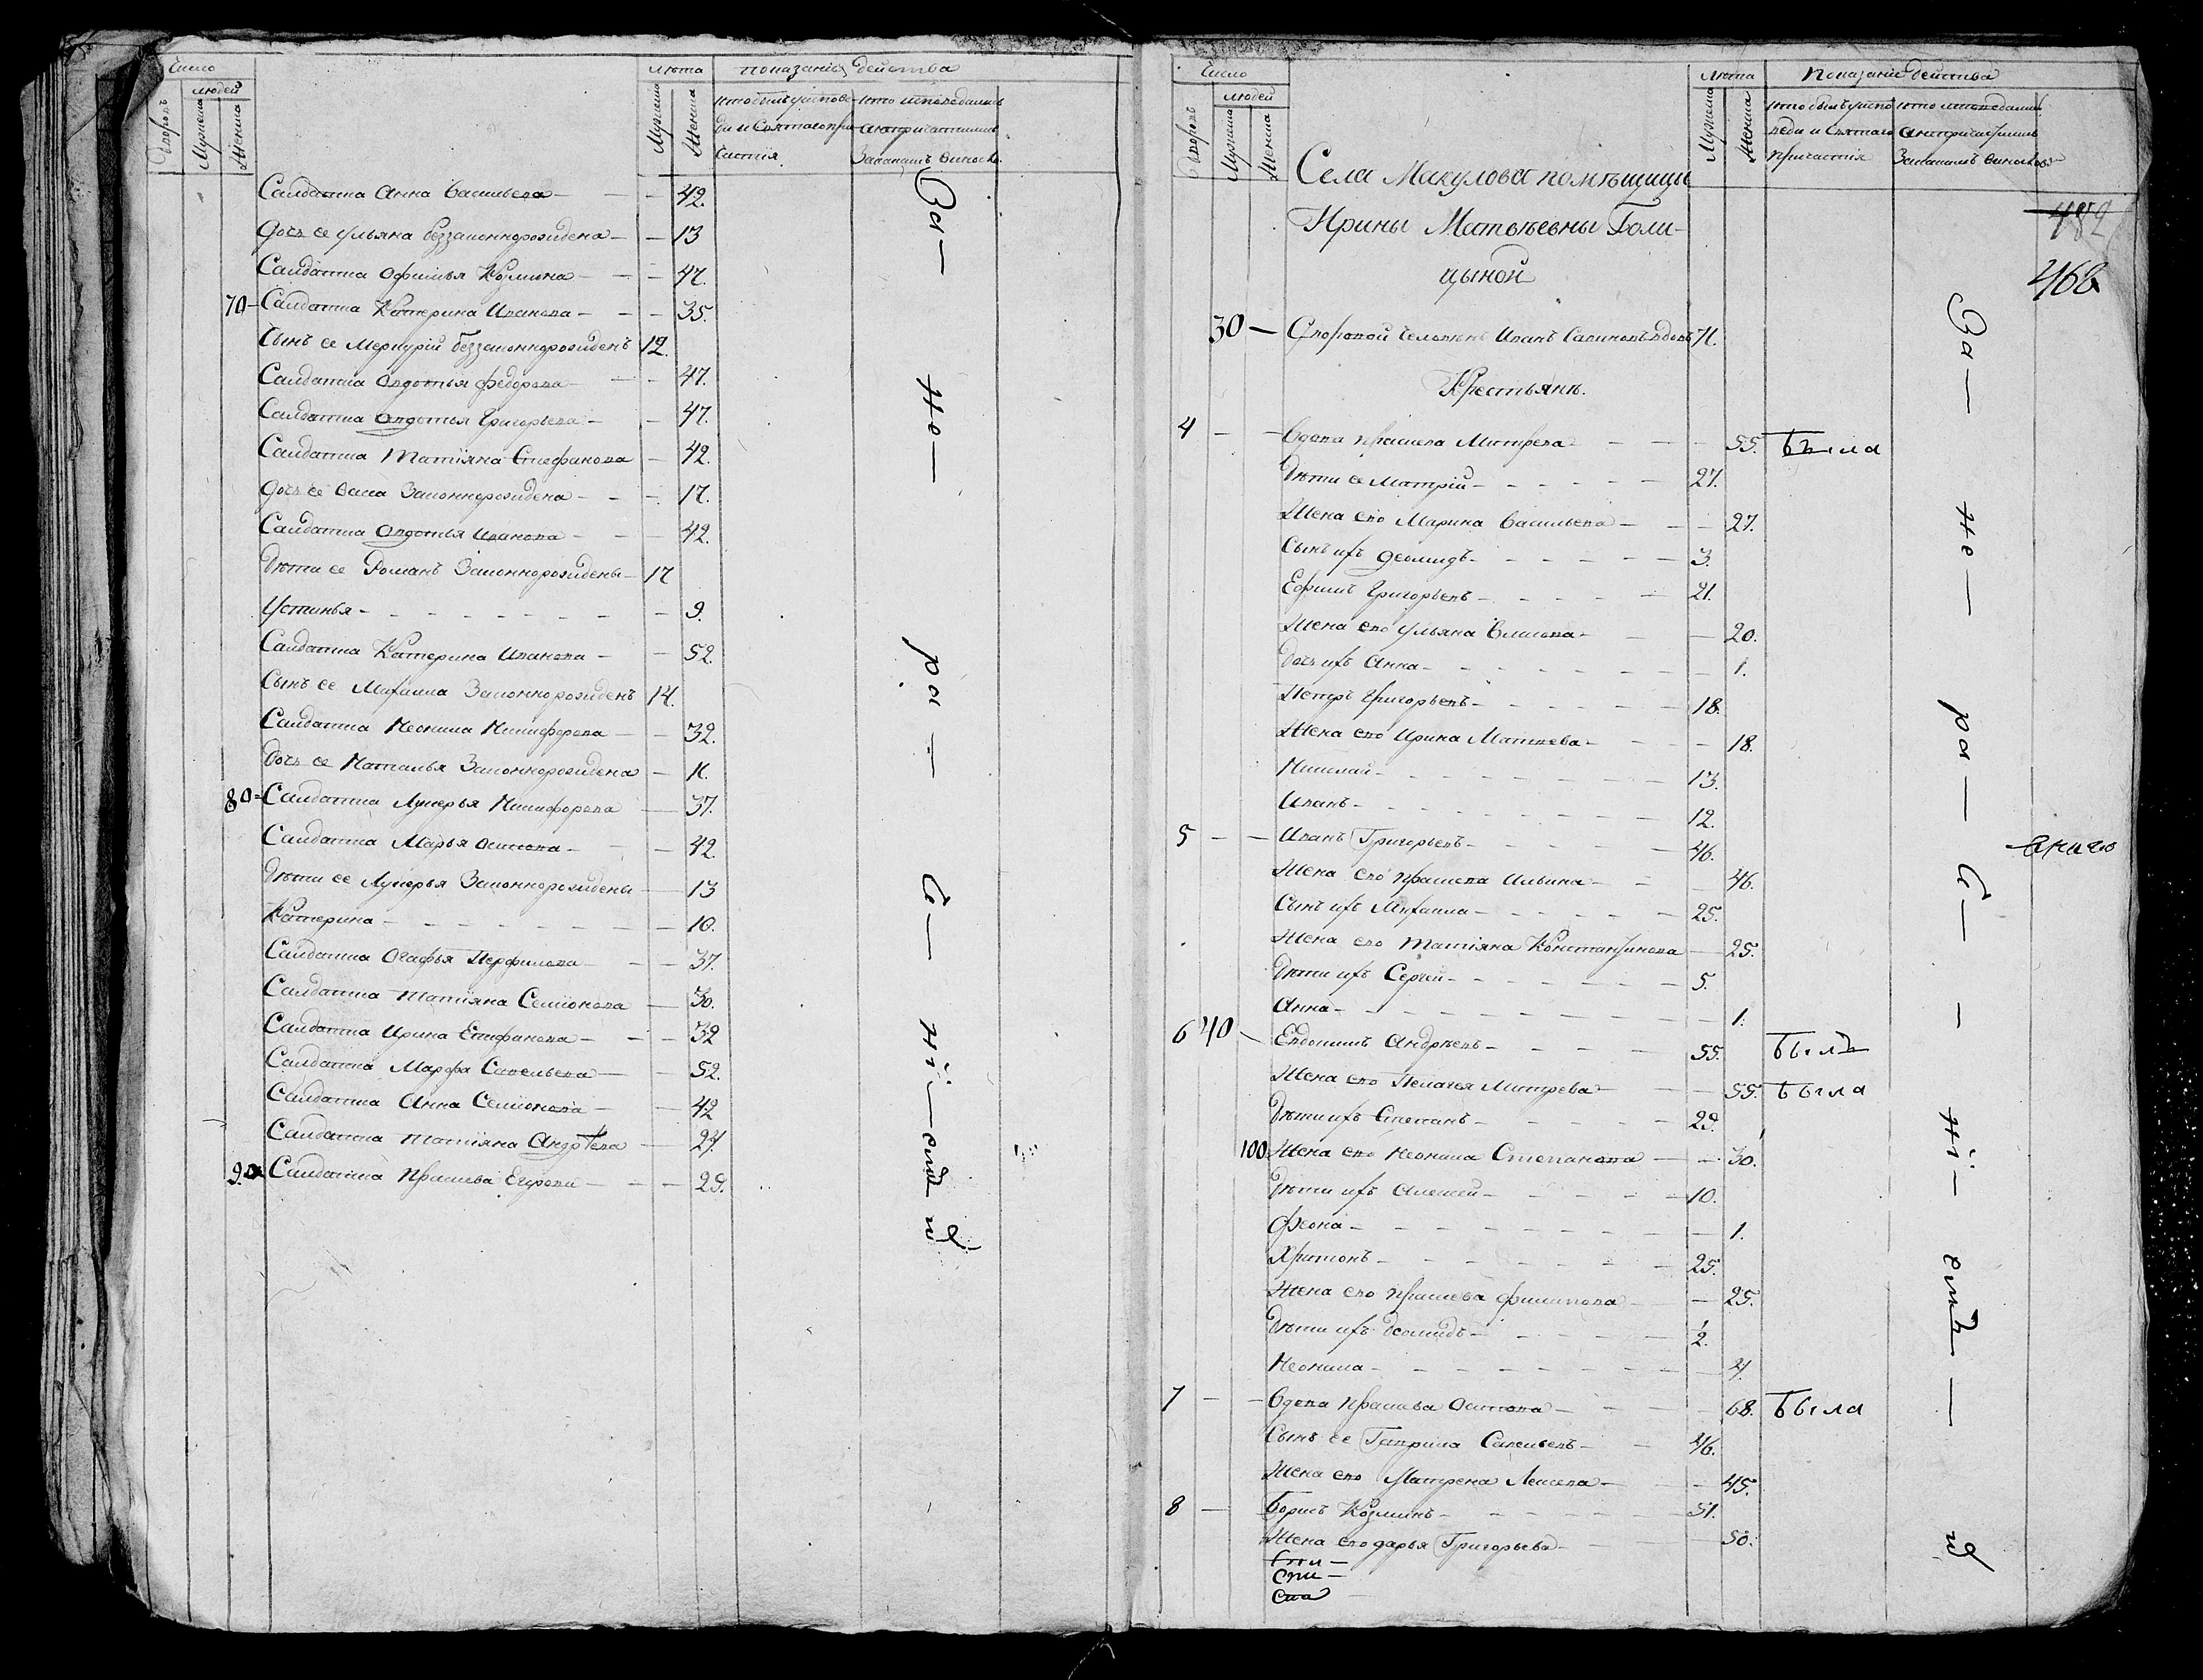 Число
людей
Дворовъ
Мужеска
Женска
лѣта
Мужеска
Женска
показаніе действа
кто былъ уиспове-
ди и Святаго при-
частія
кто исповедались
а непричастились
Салдатка Анна Васильева — — 42.
Дочь ее Ульяна беззаконнорожденна — — 13
Салдатка Офимья Козмина — — 47.
70 — Салдатка Катерина Иванова — — 35.
Сынъ ее Меркурій беззаконнорожденъ 12.
Салдатка Овдотья Федорова — — 47.
Салдатка Овдотья Григорьева — — 47.
Салдатка Татіяна Стефанова — 42.
Дочь ее Васса Законнорожденна — — 17.
Салдатка Овдотья Иванова — — 42.
Дѣти ее Романъ Законнорождены — 17
Устинья — — 9.
Салдатка Катерина Иванова — — 52.
Сынъ ее Михаила Законнорожденъ 14.
Салдатка Неонила Никифорова — — 32.
Дочь ее Наталья Законнорожденна — 11.
80 — Салдатка Лукерья Никифорова — 37.
Салдатка Марья Осипова — — 42.
Дѣти ее Лукерья Законнорождены — 13
Катерина — — 10.
Салдатка Огафья Перфилова — — 37.
Салдатка Татіяна Семіонова — 30.
Салдатка Ирина Епифанова — — 32
Салдатка Марфа Савельева — — 52.
Салдатка Анна Семіонова — — 42
Салдатка Татіяна Андрѣева — 27.
90 Салдатка Прасковья Егорова — — 29.
За — не — ра — че — ні — емъ
Число
людей
Дворовъ
Мужеска
Женска
лѣта
Мужеска
Женска
Показаніе действа
кто былъ уиспо
веди и Святаго
причастія
кто исповедались
а непричастились
482
468
Села Макулова помѣщицы
Ирины Матвѣевны Голи-
цыной
30 — Дворовой человекъ Иванъ Савиновъ вдовъ 71.
Крестьяне.
4 — — Вдова Прасковья Митрева — — 55. была
Дѣти ее Матрій — 27.
Жена его Марина Васильева — — 27.
Сынъ ихъ Деомидъ — 3.
Ефимъ Григорьевъ — 21.
Жена его Ульяна Власова — — 20.
Дочь ихъ Анна — — 1.
Петръ Григорьевъ — 18.
Жена его Ирина Матвеева — — 18.
Николай — 13.
Иванъ — 12.
5 — — Иванъ Григорьевъ — 46.
Жена его Прасковья Ильина — — 46.
Сынъ ихъ Михаила — 25.
Жена его Татіяна Константинова — 25.
Дѣти ихъ Сергей — 5.
Анна — — 1.
6 40 — Евдокимъ Андрѣевъ — 55. былъ
Жена его Пелагея Митрева — — 55. была
Дѣти ихъ Степанъ — 29.
100. Жена его Неонила Степанова — — 30.
Дѣти ихъ Алексей — 10.
Феона — — 1.
Харитонъ — 25.
Жена его Прасковья Филипова — — 25.
Дѣти ихъ Деомидъ — 2.
Неонила — 4.
7 — — Вдова Прасковья Осипова — — 68. была
Сынъ ее Гаврила Савельевъ — 46.
Жена его Матрена Алексева — — 45.
8 — Борисъ Козминъ — 51.
Жена его Дарья Григорьева — — 50.
За — не — ра — че — ні — емъ —